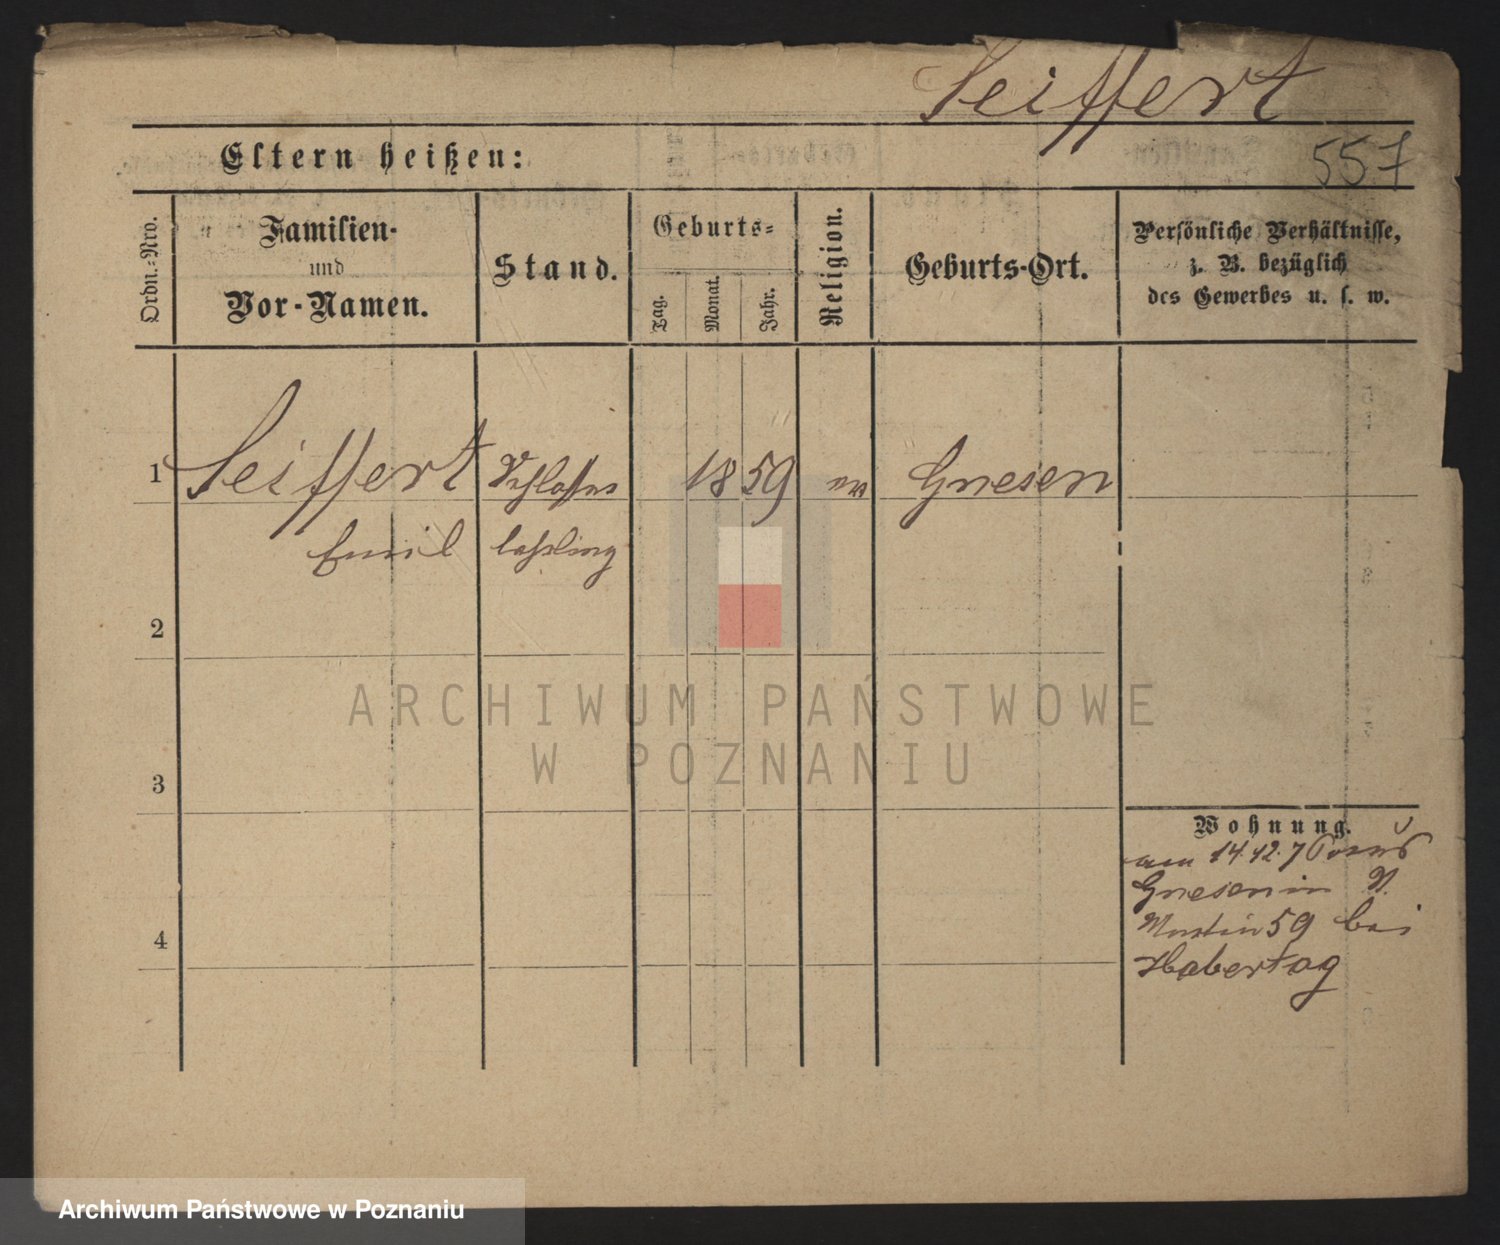 Seiffert
Eltern heißen:
557
Ordn.-Nro.
Familien-
und
Vor-Namen.
Stand.
Geburts-
Tag.
Monat.
Jahr.
Religion.
Geburts-Ort.
Persönliche Verhältnisse,
z. B. bezüglich
des Gewerbes u. s. w.
1 Seiffert Schlosser 1859 ev Gnesen
Emil lehrling
2
3
4
ARCHIWUM PAŃSTWOWE
W POZNANIU
Wohnung.
am 14.12.7
Gnesen in
Martin 59 bei
Habertag
Archiwum Państwowe w Poznaniu